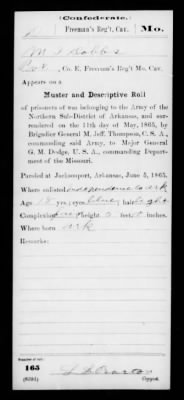 (Confederate.)
Freeman's Reg't, Cav. Mo.
Co. E, Freeman's Reg't Mo. Cav.
Appears on a
Muster and Descriptive Roll
of prisoners of war belonging to the Army of the
Northern Sub-District of Arkansas, and sur-
rendered on the 11th day of May, 1865, by
Brigadier General M. Jeff. Thompson, C. S. A.,
commanding said Army, to Major General
G. M. Dodge, U. S. A., commanding Depart-
ment of the Missouri.
Paroled at Jacksonport, Arkansas, June 5, 1865.
Where enlisted Independence Co Ark
Age 18 yrs.; eyes blue; hair light
Complexion; height 5 feet inches.
Where born Ark
Remarks:
Number of roll:
165
Copyist.